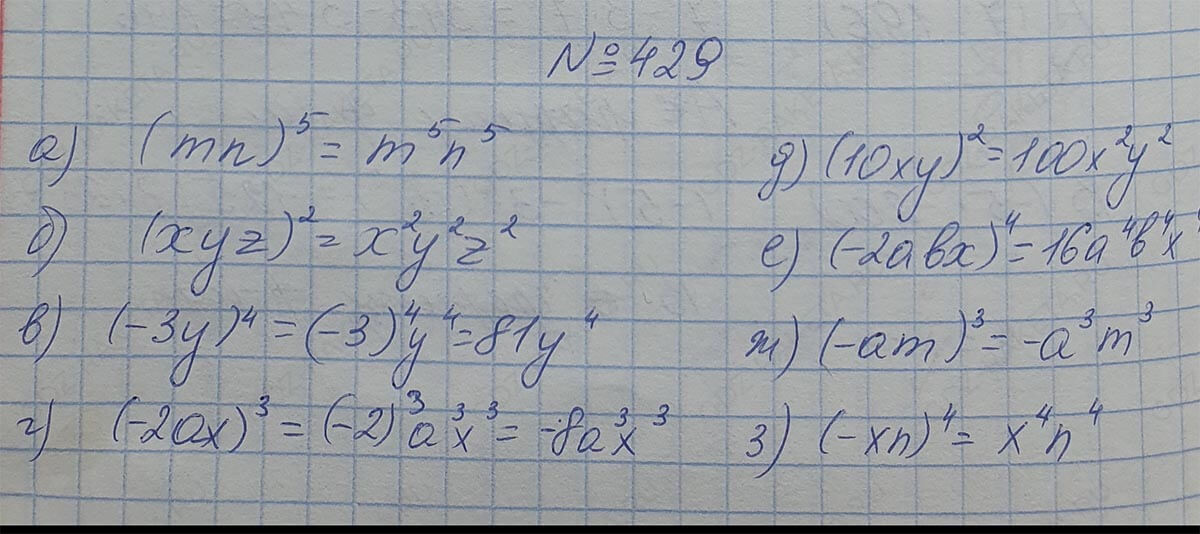 № 429
а) (mn)⁵ = m⁵n⁵
б) (xyz)² = x²y²z²
в) (-3y)⁴ = (-3)⁴y⁴ = 81y⁴
г) (-2ax)³ = (-2)³a³x³ = -8a³x³
д) (10xy)² = 100x²y²
е) (-2abx)⁴ = 16a⁴b⁴x⁴
ж) (-am)³ = -a³m³
з) (-xn)⁴ = x⁴n⁴